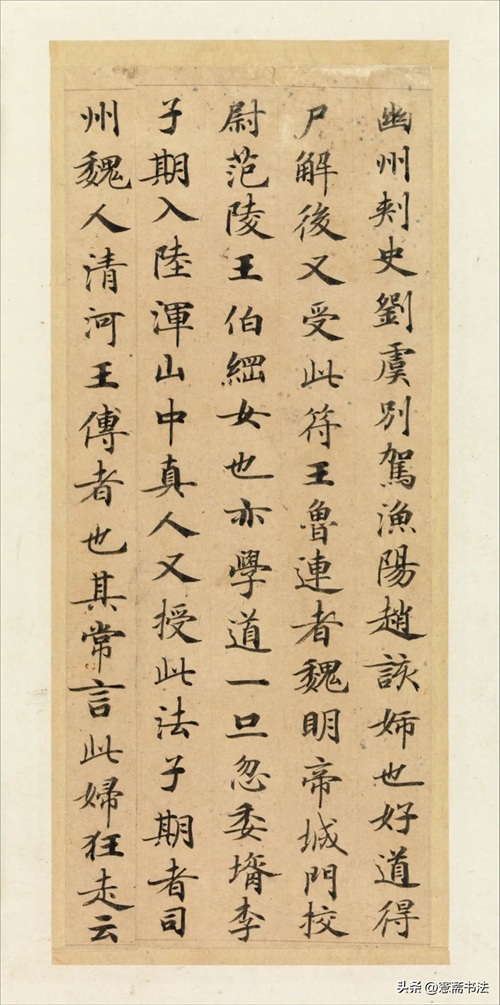 幽州刾史劉虞別駕漁陽趙該姉也好道得
尸解後又受此符王魯連者魏明帝城門校
尉范陵王伯綱女也亦學道一旦忽委壻李
子期入陸渾山中真人又授此法子期者司
州魏人清河王傅者也其常言此婦狂走云
头条 @憲斋书法